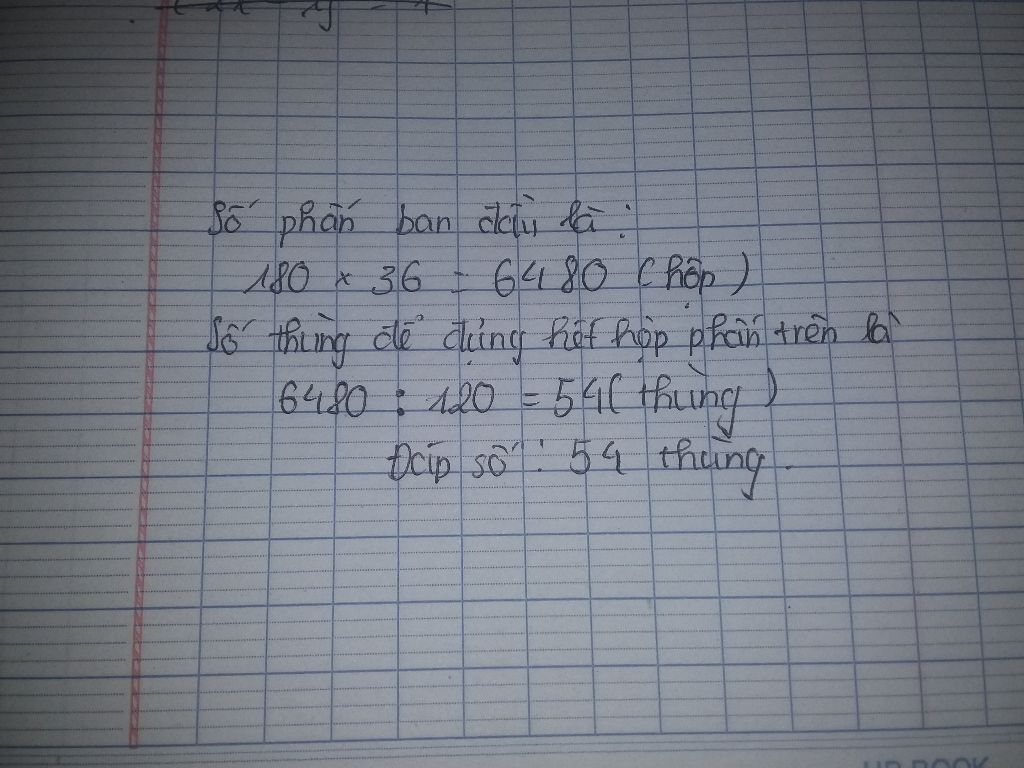 Số phấn ban đầu là:
180 × 36 = 6480 (hộp)
Số thùng để đựng hết hộp phấn trên là
6480 : 120 = 54( thùng )
Đáp số : 54 thùng.